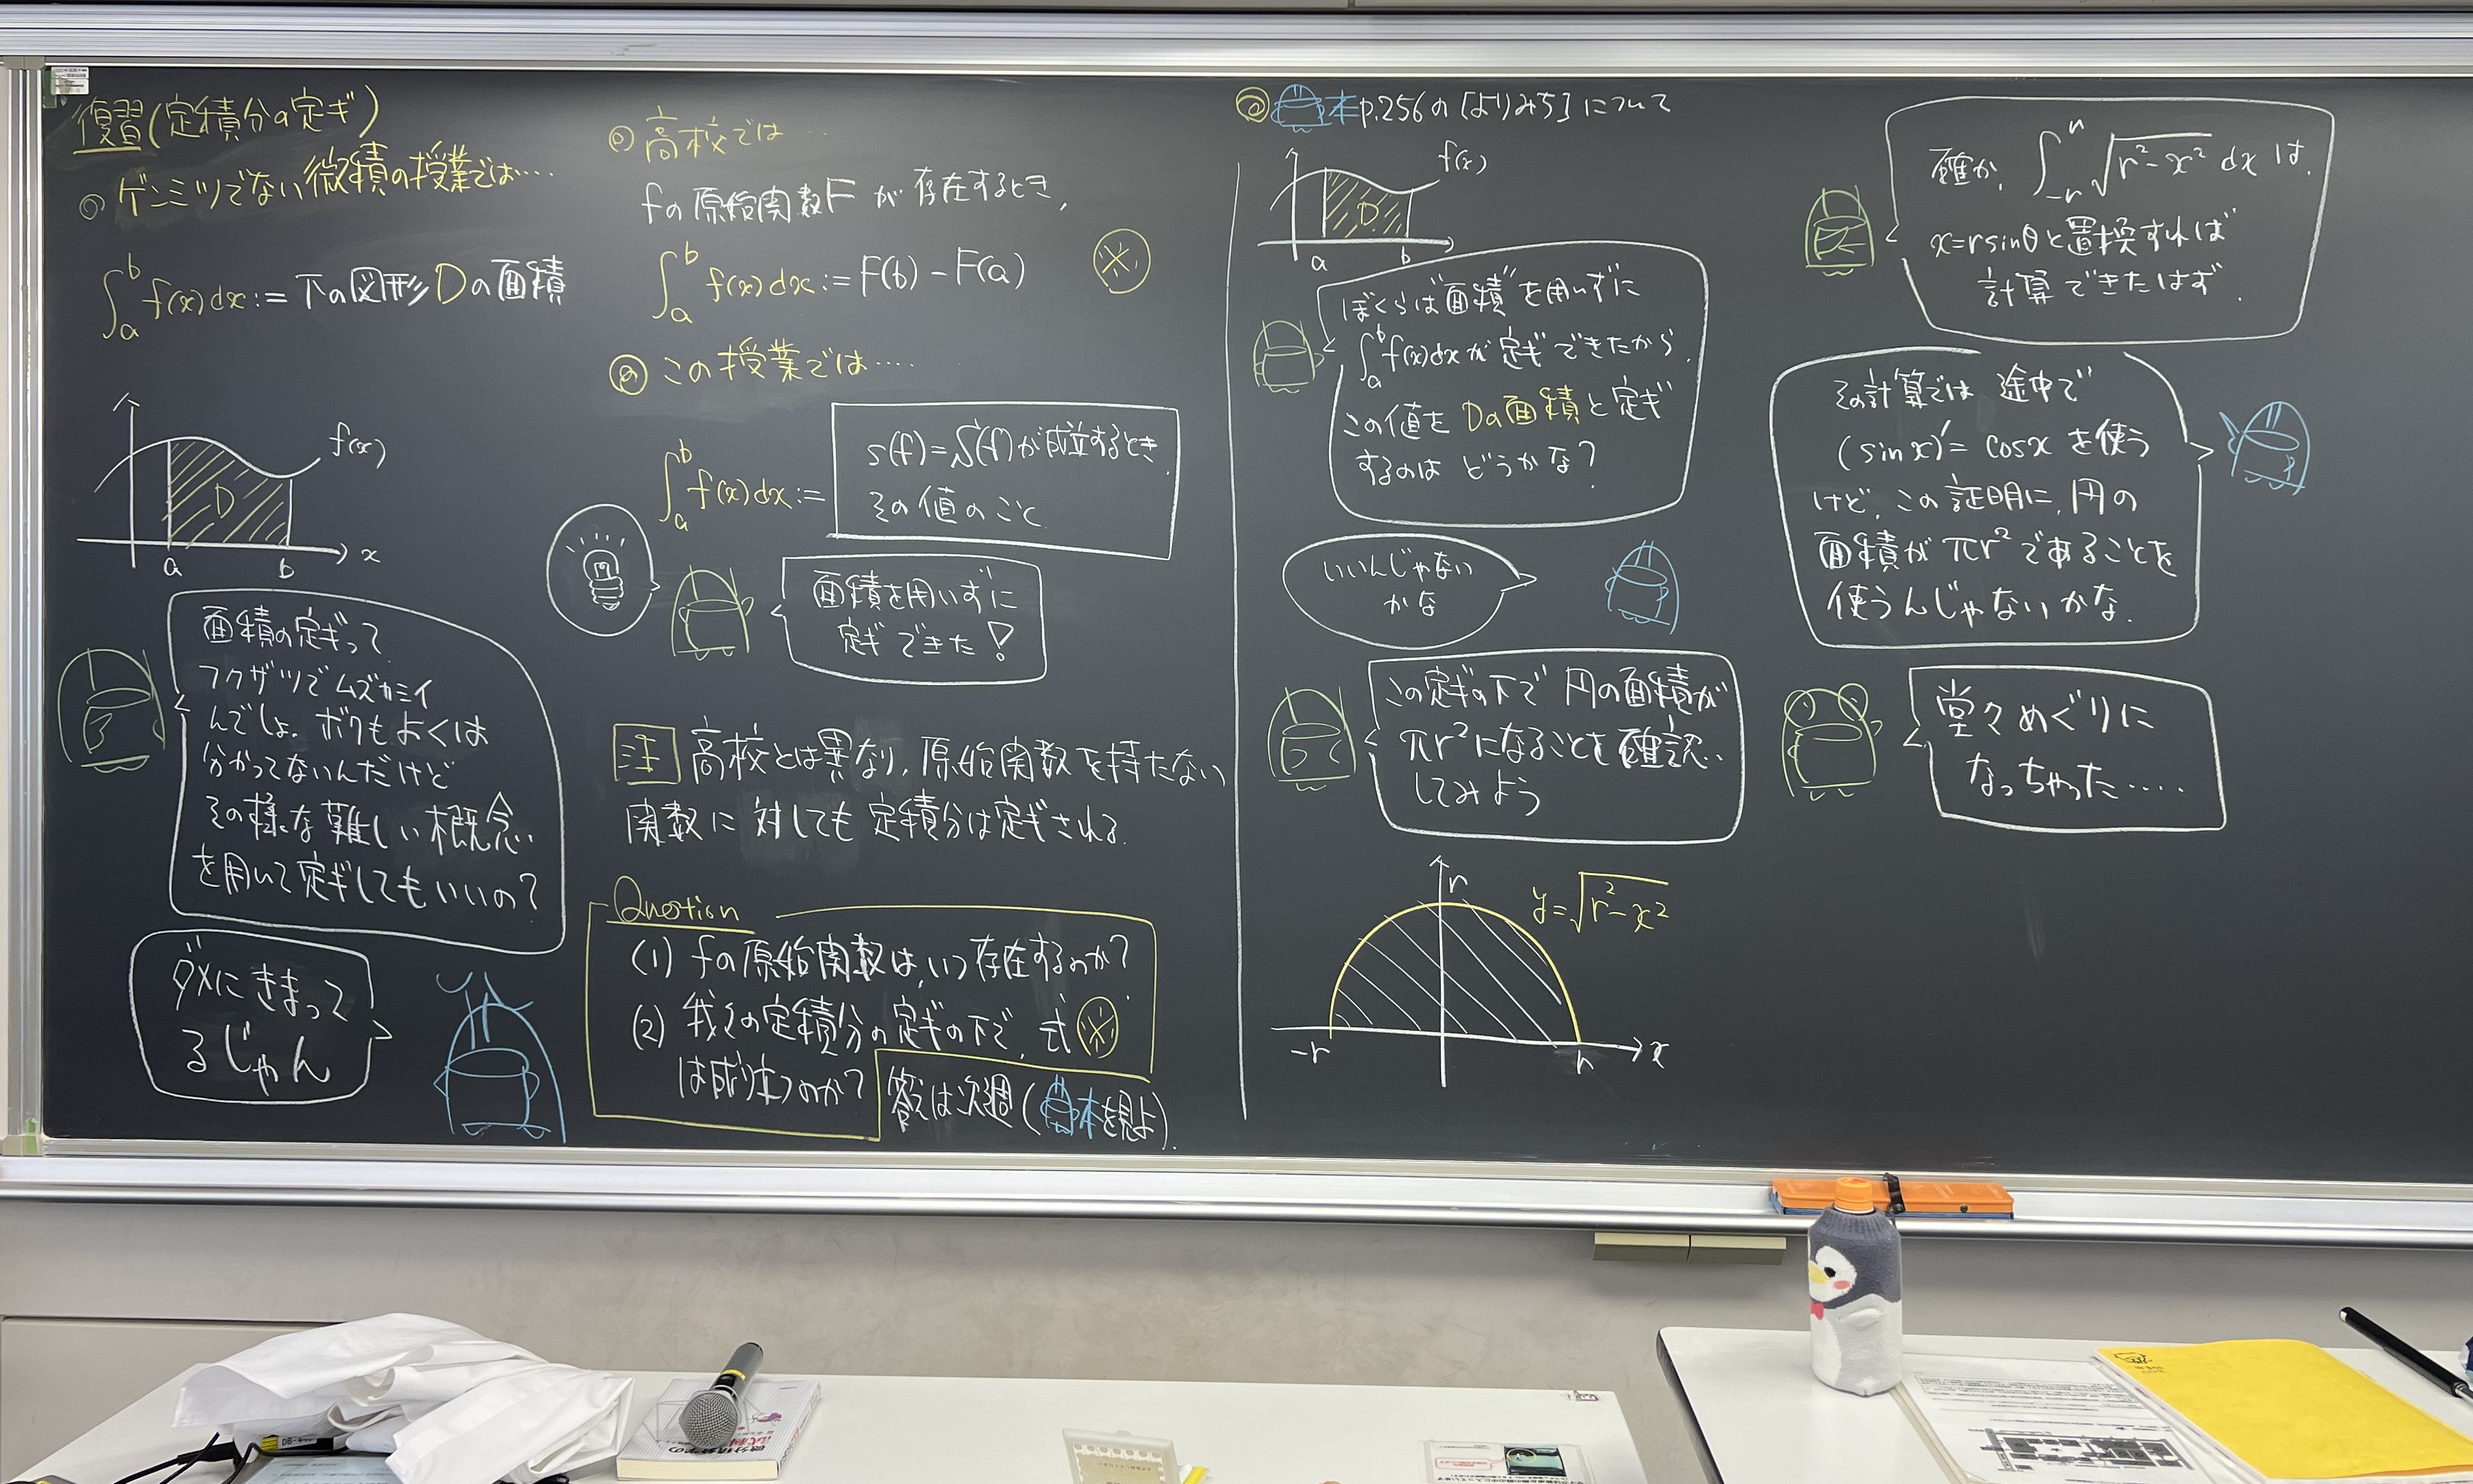 復習(定積分の定ギ)
◎ ゲンミツでない微積の授業では…
∫_a^b f(x)dx := 下の図形Dの面積
f(x)
D
a b x
面積の定ギって
フクザツでムズカシイ
んでしょ. ボクもよくは
分かってないんだけど
その様な難しい概念
を用いて定ギしてもいいの?
ダメにきまって
るじゃん
◎ 高校では…
fの原始関数Fが存在するとき,
∫_a^b f(x)dx := F(b) − F(a) ※
◎ この授業では…
∫_a^b f(x)dx :=
s(f)=S(f)が成立するとき
その値のこと
面積を用いずに
定ギできた!
注 高校とは異なり, 原始関数を持たない
関数に対しても定積分は定ギされる.
Question
(1) fの原始関数は,いつ存在するのか?
(2) 我々の定積分の定ギの下で, 式※
は成り立つのか?
答えは次週(本を見よ).
◎ 本p.256の[よりみち]について
f(x)
D
a b
ぼくらは"面積"を用いずに
∫_a^b f(x)dxが定ギできたから
この値をDの面積と定ギ
するのはどうかな?
いいんじゃない
かな
この定ギの下で円の面積が
πr²になることを確認
してみよう
r
y=√(r²−x²)
−r r x
確か, ∫_{-r}^r √(r²−x²) dx は,
x=rsinθと置換すれば
計算できたはず.
その計算では途中で
(sinx)′=cosxを使う
けど, この証明に, 円の
面積がπr²であることを
使うんじゃないかな.
堂々めぐりに
なっちゃった……